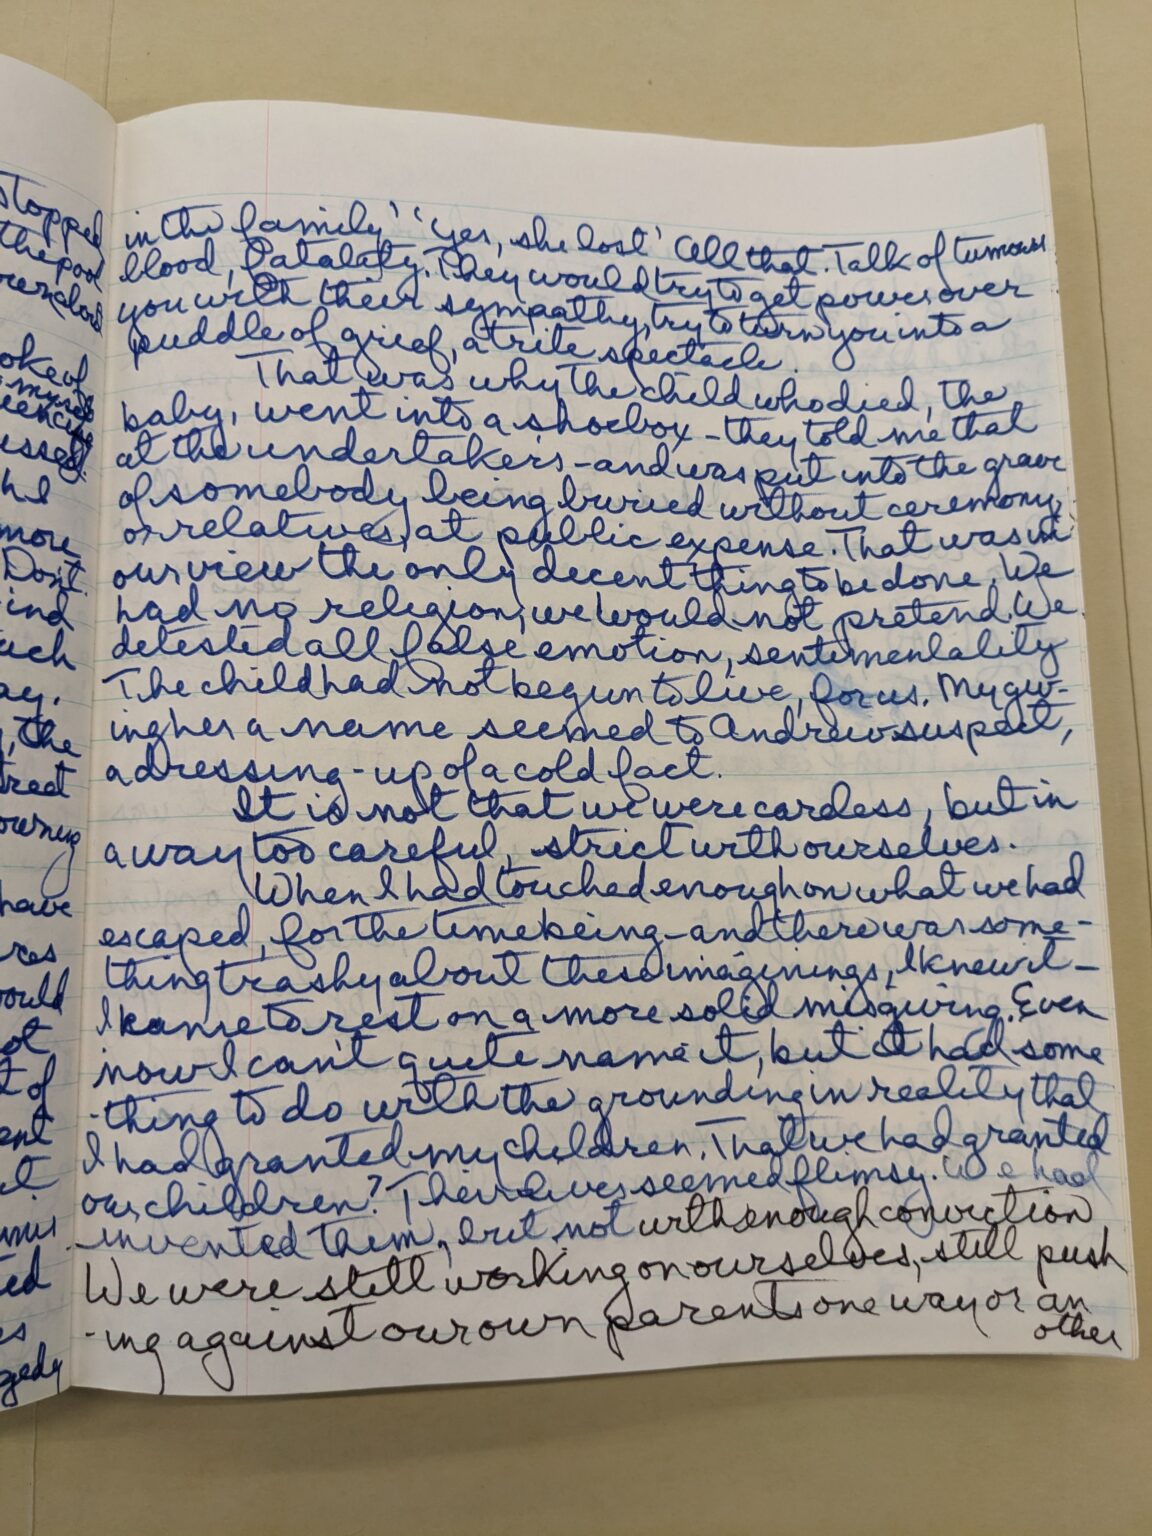 stopped
the pool
oke of
ussed
h I
more
Don't
ind
ach
ay.
, the
treet
owning
have
res
would
ot
t of
ent
it
ed
es
gedy
in the family' 'Yes, she lost' All that. Talk of tumours
blood, Fatality. They would try to get power over
you with their sympathy, try to turn you into a
puddle of grief, a trite spectacle.
That was why the child who died, the
baby, went into a shoebox – they told me that
at the undertakers – and was put into the grave
of somebody being buried without ceremony,
or relatives, at public expense. That was in
our view the only decent thing to be done. We
had no religion, we would not pretend. We
detested all false emotion, sentimentality
The child had not begun to live, for us. My giv-
ing her a name seemed to Andrew suspect,
a dressing-up of a cold fact.
It is not that we were careless, but in
a way too careful, strict with ourselves.
When I had touched enough on what we had
escaped, for the time being – and there was some-
thing trashy about these imaginings, I knew it –
I came to rest on a more solid misgiving. Even
now I can't quite name it, but it had some
-thing to do with the grounding in reality that
I had granted my children. That we had granted
our children? Their lives seemed flimsy. We had
invented them, but not with enough conviction
We were still working on ourselves, still push
-ing against our own parents one way or an
other